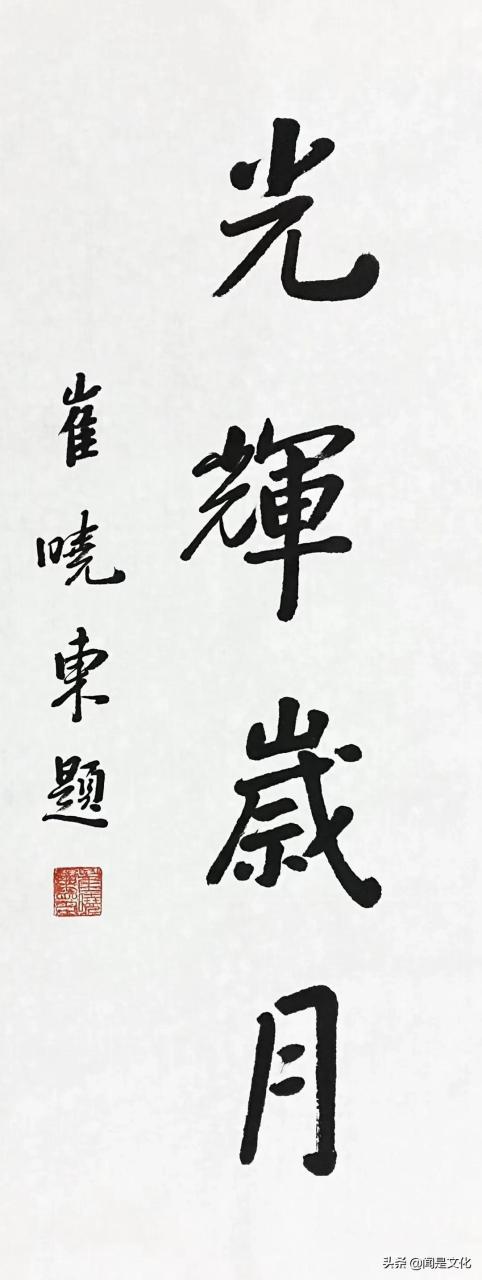 光輝歲月
崔曉東題
头条 @闻是文化